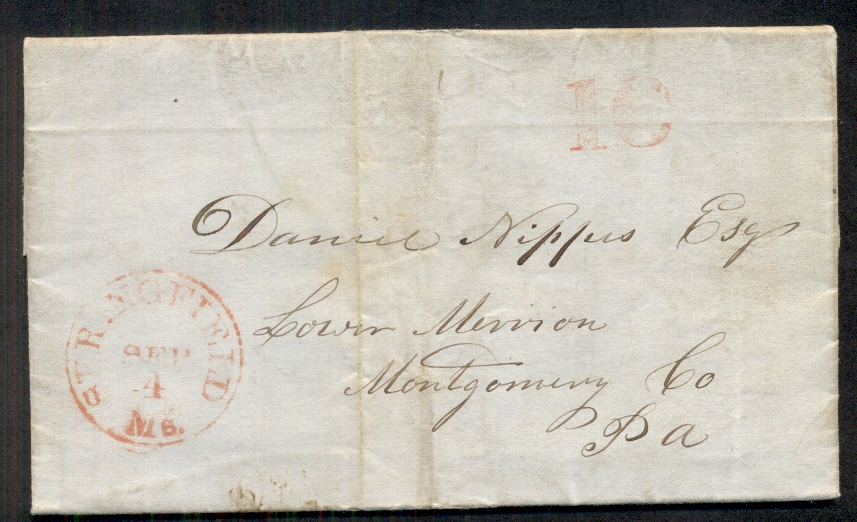 10
Daniel Nippes Esq
Lower Merion
Montgomery Co
Pa
SPRINGFIELD
SEP
4
Ms.